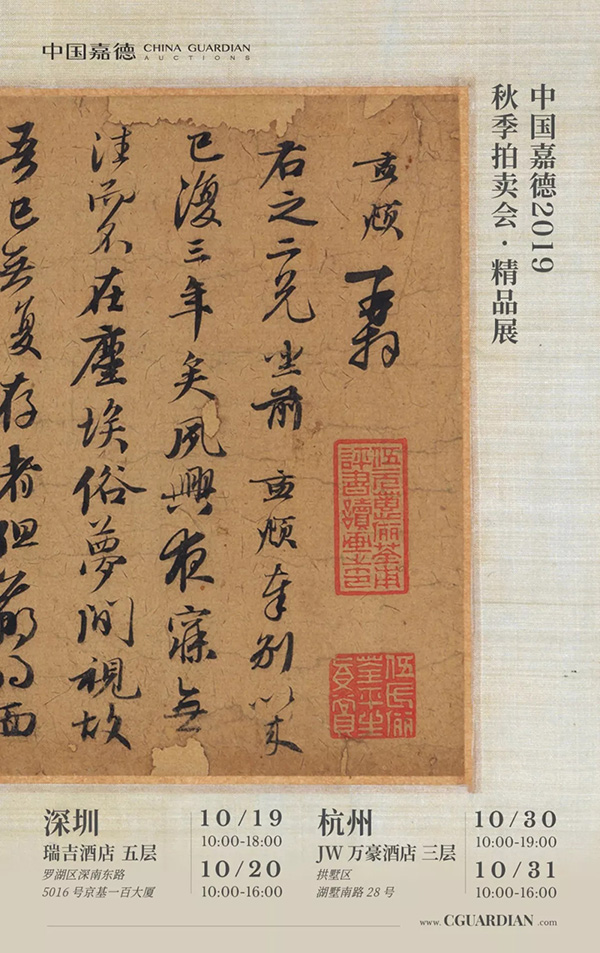 中国嘉德 CHINA GUARDIAN
AUCTIONS
中国嘉德2019
秋季拍卖会·精品展
孟頫再拜
右之二兄坐前孟頫奉別以来
已復三年矣夙興夜寐無
往而不在塵埃俗夢間視故
吾已無復存者但羸得面
伍元蕙儷荃甫
評書讀畫之印
伍氏儷
荃平生
真賞
深圳
瑞吉酒店 五层
罗湖区深南东路
5016 号京基一百大厦
10/19
10:00-18:00
10/20
10:00-16:00
杭州
JW 万豪酒店 三层
拱墅区
湖墅南路 28 号
10/30
10:00-19:00
10/31
10:00-16:00
www.CGUARDIAN.com